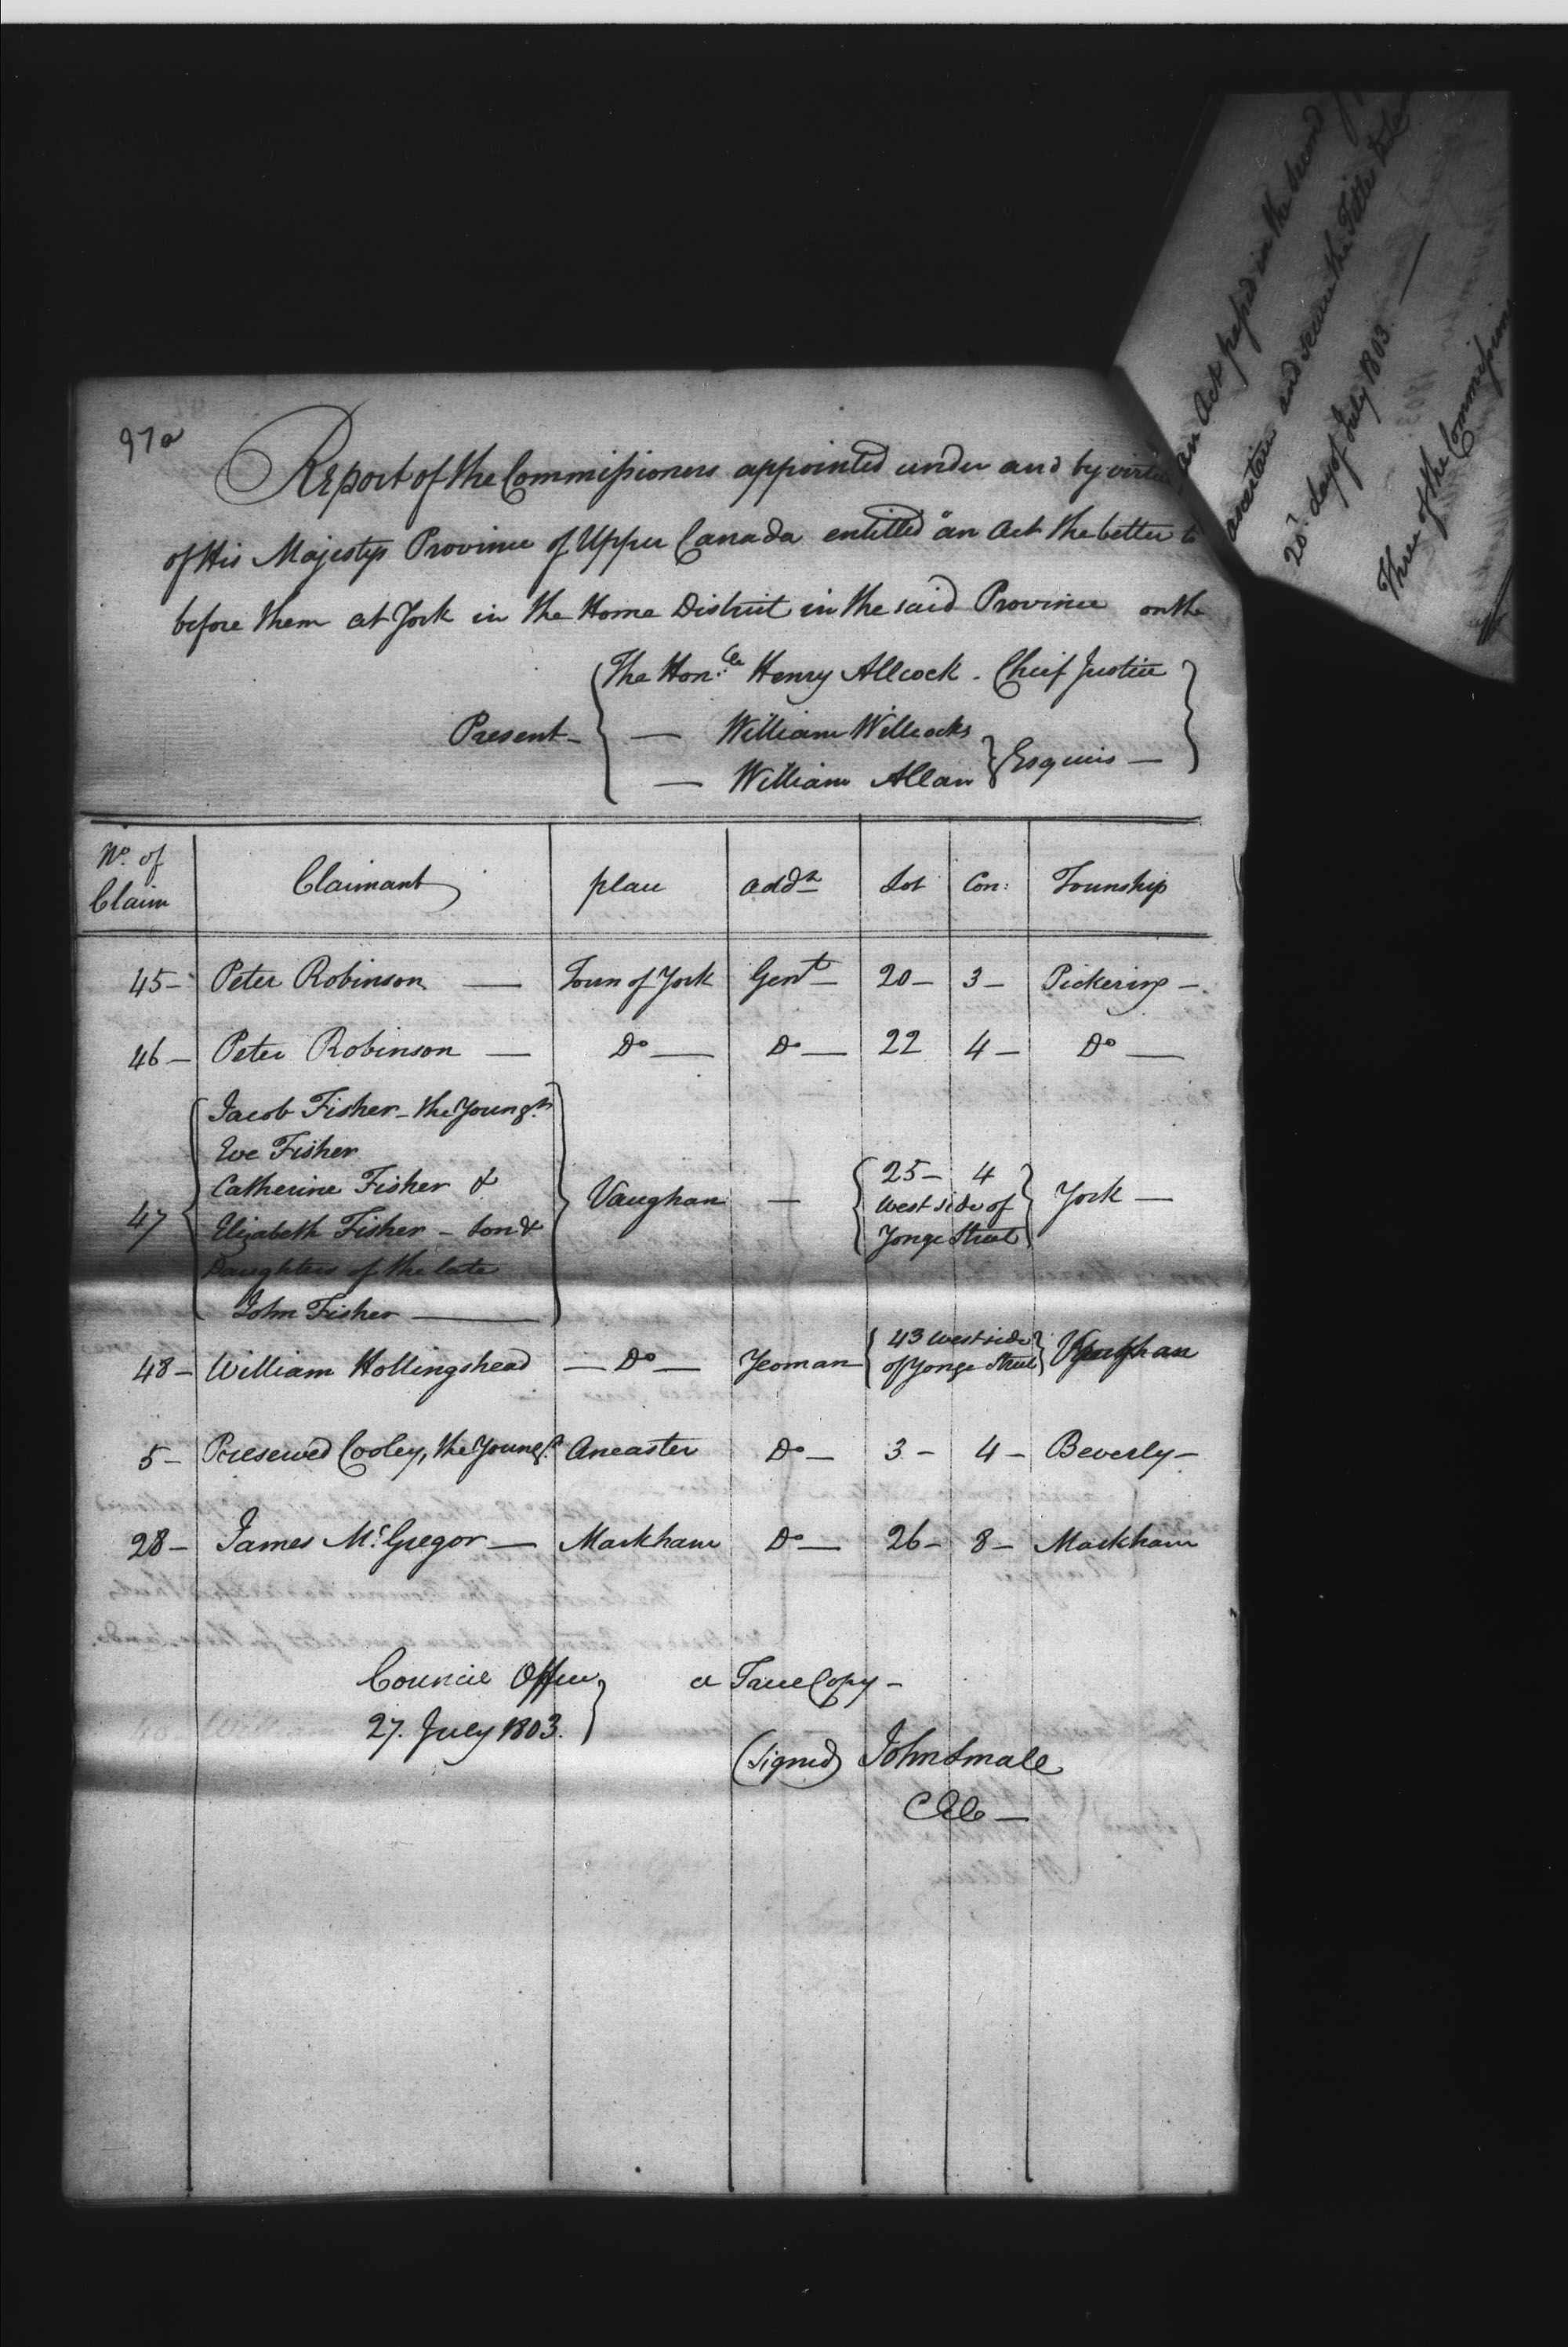 97a
Report of the Commissioners appointed under and by virtue
of His Majestys Province of Upper Canada entitled "an Act the better to
before them at York in the Home District in the said Province on the
an Act passed in the second
ascertain and secure the Titles to La
20th day of July 1803. —
Three of the Commissioners
Present - The Hon.ble Henry Allcock - Chief Justice
— William Willcocks
— William Allan } Esquires —
No. of Claim Claimant place addn Lot Con: Township
45 - Peter Robinson — Town of York Gent - 20 - 3 - Pickering -
46 - Peter Robinson — Do — Do — 22 4 - Do —
47 Jacob Fisher - the Youngr
Eve Fisher
Catherine Fisher &
Elizabeth Fisher - Son &
Daughters of the late
John Fisher —
Vaughan — 25 - 4
West side of
Yonge Street
York —
48 - William Hollingshead — Do — Yeoman 43 west side
of Yonge Street
Vaughan
5 - Preserved Cooley, the Youngr Ancaster Do - 3 - 4 - Beverly -
28 - James McGregor — Markham Do — 26 - 8 - Markham
Council Office
27. July 1803.
a True Copy -
(signed) John Small
CEC —